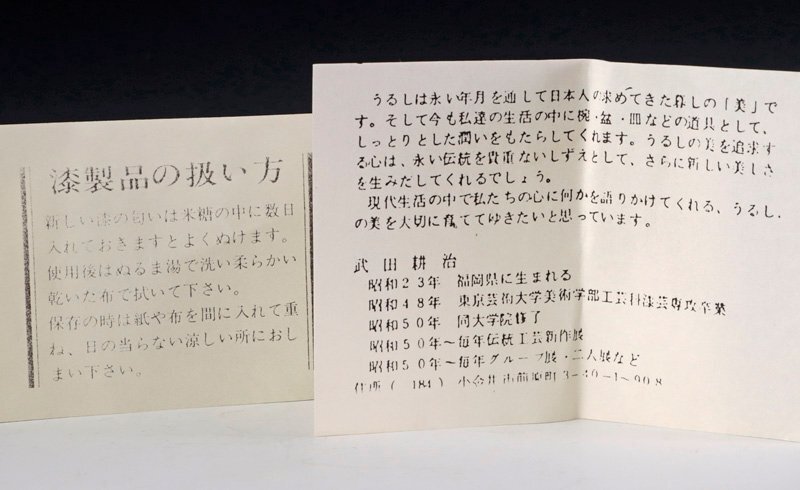 漆製品の扱い方
新しい漆の匂いは米糖の中に数日
入れておきますとよくぬけます。
使用後はぬるま湯で洗い柔らかい
乾いた布で拭いて下さい。
保存の時は紙や布を間に入れて重
ね、日の当らない涼しい所におし
まい下さい。
うるしは永い年月を通して日本人の求めてきた暮しの「美」で
す。そして今も私達の生活の中に椀・盆・皿などの道具として、
しっとりとした潤いをもたらしてくれます。うるしの美を追求す
る心は、永い伝統を貴重ないしずえとして、さらに新しい美しさ
を生みだしてくれるでしょう。
現代生活の中で私たちの心に何かを語りかけてくれる、うるし.
の美を大切に育ててゆきたいと思っています。
武田耕治
昭和23年 福岡県に生まれる
昭和48年 東京芸術大学美術学部工芸科漆芸専攻卒業
昭和50年 同大学院修了
昭和50年〜毎年伝統工芸新作展
昭和50年〜毎年グループ展・二人展など
住所( 184) 小金井市前原町3-40-1-908